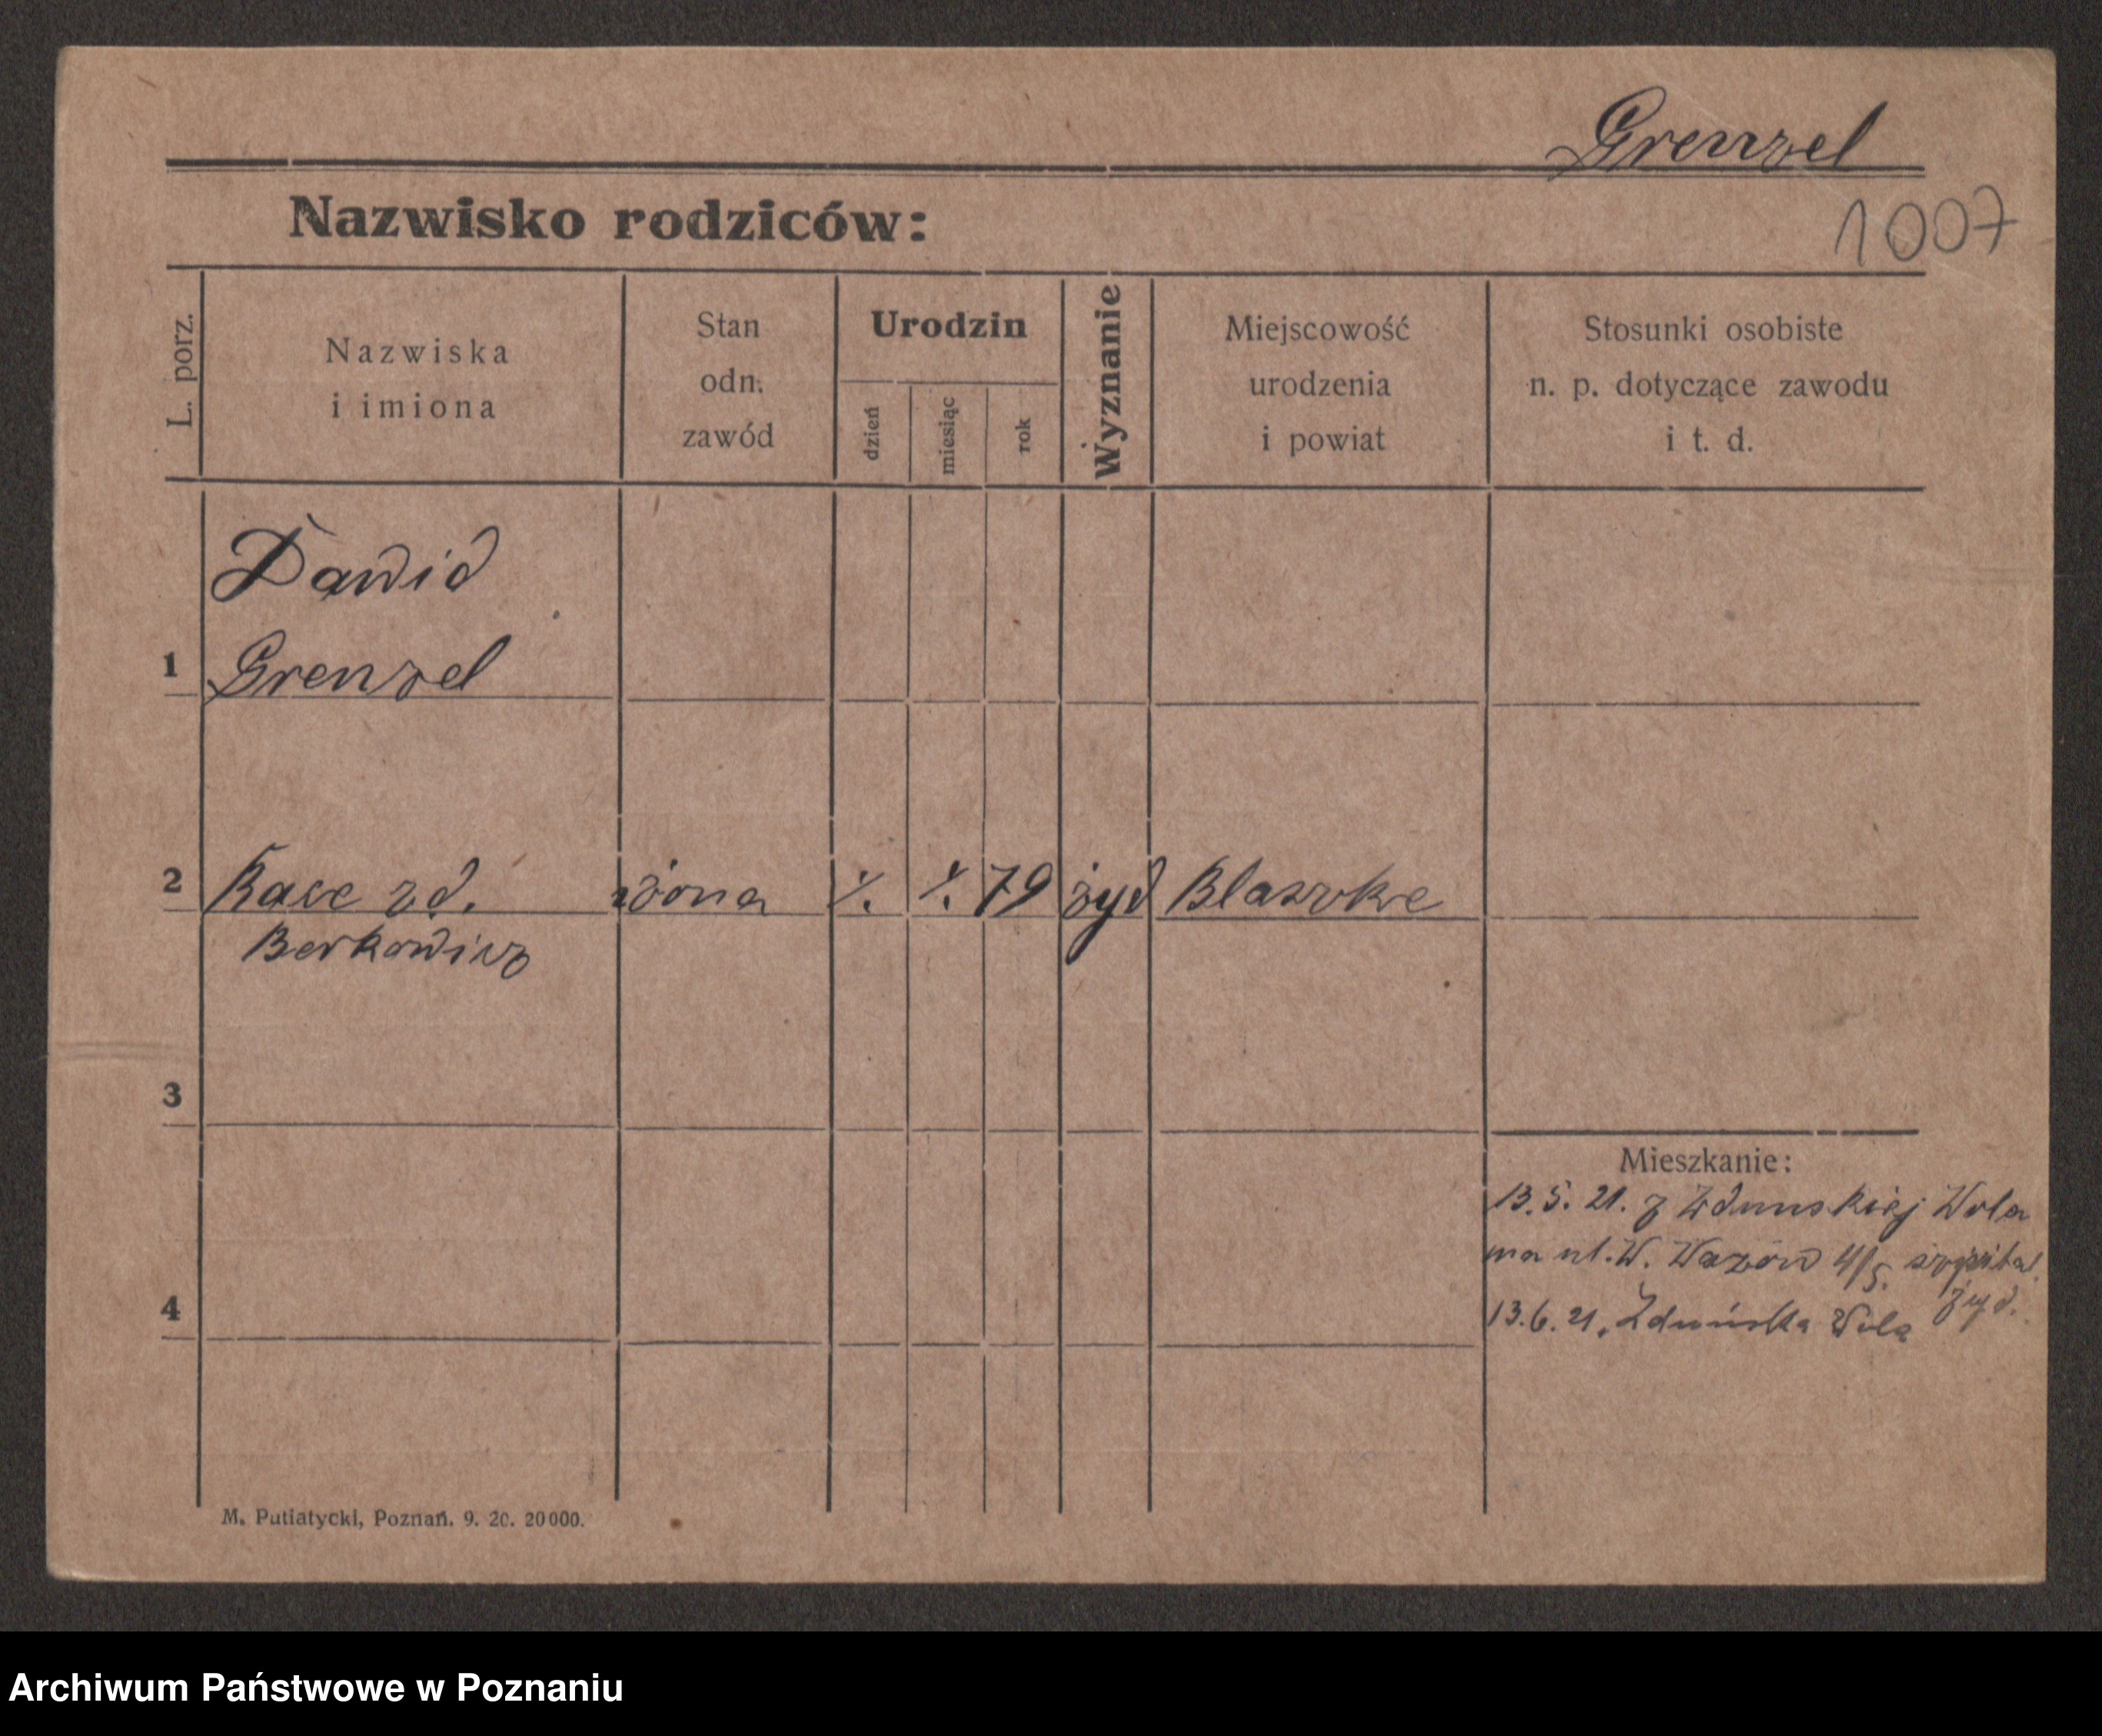 Grenzel
1007
Nazwisko rodziców:
L. porz.
Nazwiska
i imiona
Stan
odn.
zawód
Urodzin
dzień
miesiąc
rok
Wyznanie
Miejscowość
urodzenia
i powiat
Stosunki osobiste
n. p. dotyczące zawodu
i t. d.
Dawid
1 Grenzel
2 zd. żona ./. ./. 79 żyd Blaszke
Berkowicz
3
Mieszkanie:
13. 5. 21. z Zdunskiej Wola
na ul. W. Wazów 4/5. szpital.
żyd.
4 13. 6. 21. Zduńska Wola
M. Putiatycki, Poznań. 9. 20. 20000.
Archiwum Państwowe w Poznaniu